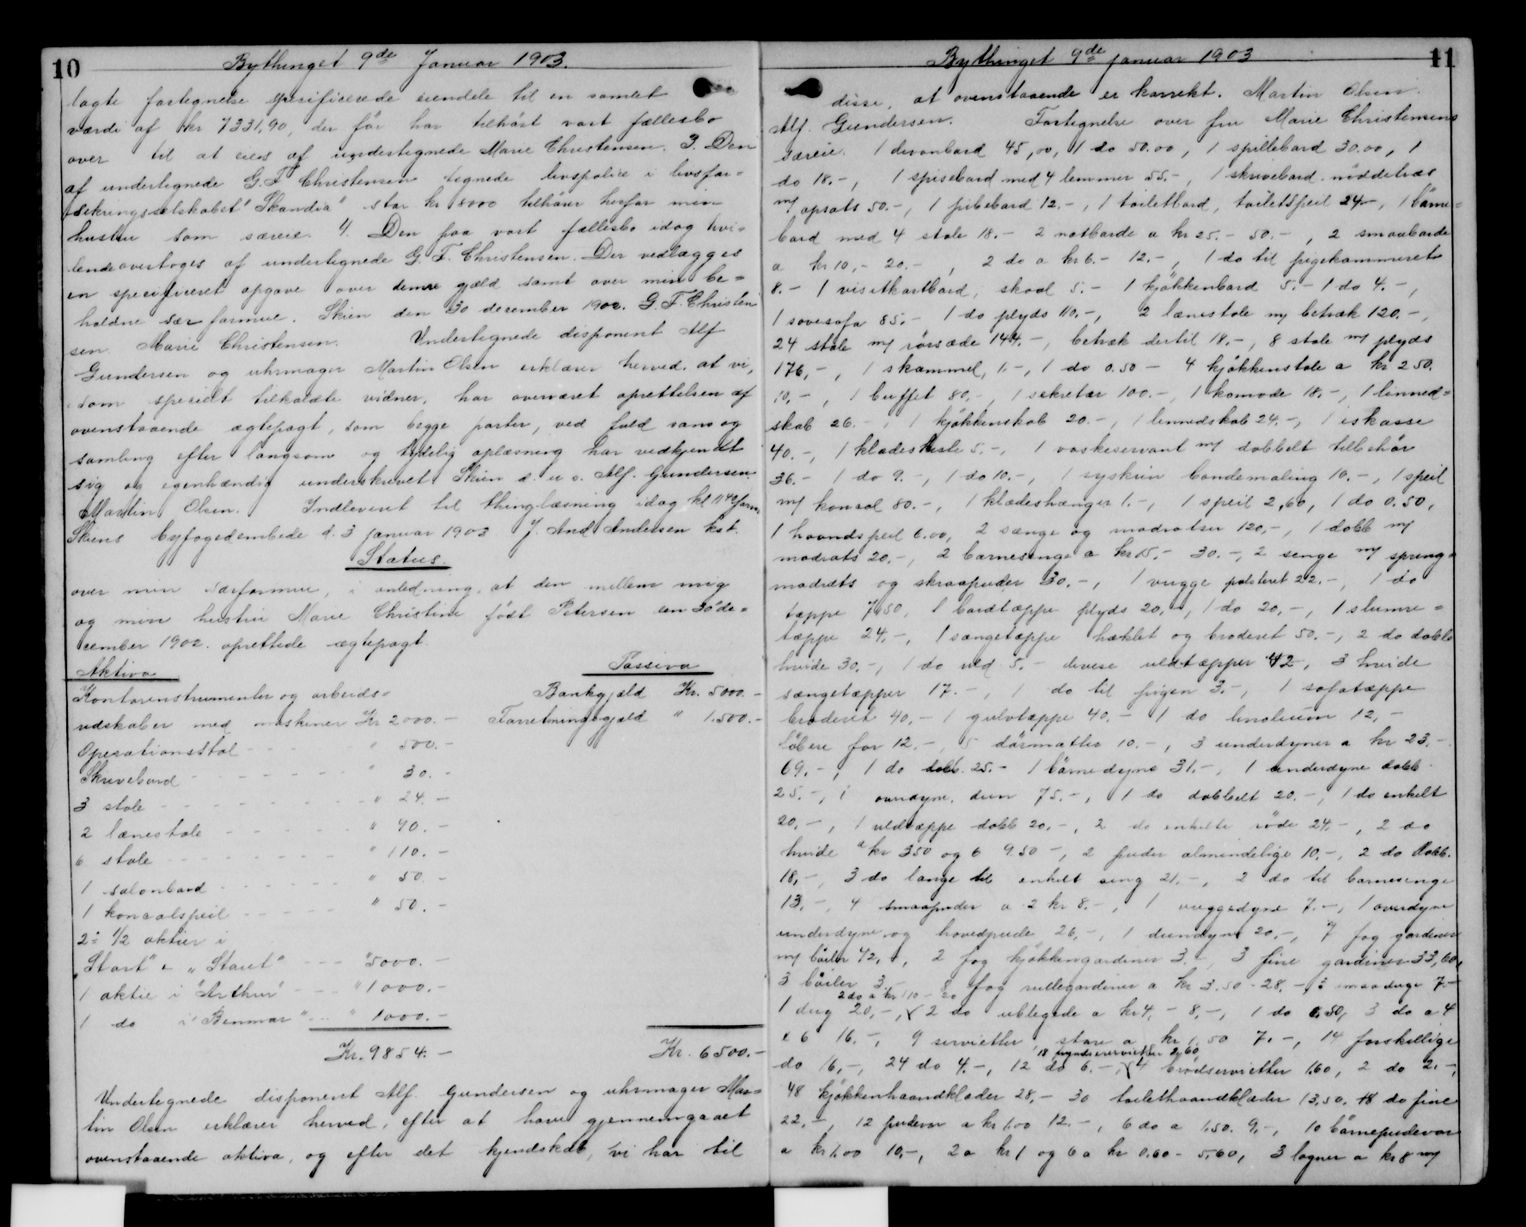 10
Bythinget 9de Januar 1903.
lagte fortegnelse spesificerede eiendele til en samlet
værdi af kr 7331,90, der før har tilhørt vort fællesbo
over til at eies af undertegnede Marie Christensen. 3. Den
af undertegnede G. F. Christensen tegnede livspolice i livsfor=
sikringsselskabet "Skandia" stor kr 5000 tilhører herfor min
hustru som særeie. 4. Den paa vort fællesbo idag hvi=
lende overtoges af undertegnede G. F. Christensen. Der vedlægges
en specificeret opgave over denne gjæld samt over min be=
holdne særformue. Skien den 30 desember 1902. G. F. Christen
sen. Marie Christensen. Undertegnede disponent Alf
Gundersen og uhrmager Martin Olsen erklærer herved, at vi,
som specielt tilkaldte vidner, har overværet oprettelsen af
ovenstaaende ægtepagt, som begge parter, ved fuld sans og
samling efter langsom og tydelig oplæsning har vedkjendt
sig og egenhændig underskrevet. Skien d. u. s. Alf. Gundersen.
Martin Olsen. Indleveret til thinglæsning idag kl 11 40 form.
Skiens byfogedembede d. 3 januar 1903 J. And Andersen kst.
Status
over min særformue, i anledning at den mellem mig
og min hustru Marie Christine født Petersen den 30 de=
cember 1902. oprettede ægtepagt.
Aktiva Passiva
Kontorinstrumenter og arbeids= Bankgjæld Kr. 5000.-
redskaber med maskiner Kr 2000.- Forretningsgjæld " 1.500.-
Operationsstol " 500.-
Skrivebord " 30.-
3 stole " 24.-
2 lænestole " 90.-
6 stole " 110.-
1 salonbord " 50.-
1 konsolspeil " 50.-
2 1/2 aktier i
"Start" & "Staut" " 5000.-
1 aktie i "Arthur" " 1000.-
1 do i "Benmar" " 1000.-
Kr. 9854.- Kr. 6500.-
Undertegnede disponent Alf. Gundersen og uhrmager Mar=
tin Olsen erklærer herved, efter at have gjennemgaaet
ovenstaaende aktiva, og efter det kjendskab, vi har til
11
Bythinget 9de januar 1903
disse, at ovenstaaende er korrekt. Martin Olsen.
Alf. Gundersen. Fortegnelse over fru Marie Christensens
særeie. 1 divanbord 45,00, 1 do 50.00, 1 spillebord 30.00, 1
do 18.-, 1 spisebord med 4 lemmer 55.-, 1 skrivebord nøddetræs
m/ opsats 50.-, 1 pibebord 12.-, 1 toiletbord, toiletspeil 24.-, 1 børne=
bord med 4 stole 18.- 2 natborde a kr 25.- 50.-, 2 smaaborde
a kr 10,- 20.-, 2 do a kr 6.- 12.-, 1 do til pigekammeret
8.- 1 visitkartbord, skaal 5.- 1 kjøkkenbord 5.- 1 do 4.-,
1 sovesofa 85.- 1 do plyds 110.-, 2 lænestole m/ betræk 120.-,
24 stole m/ rørsæde 144.-, betræk dertil 18.-, 8 stole m/ plyds
176,-, 1 skammel, 1.-, 1 do 0.50 - 4 kjøkkenstole a kr 2.50
10,-, 1 buffet 80.-, 1 sekretær 100.-, 1 komode 18,-, 1 linned=
skab 26.-, 1 kjøkkenskab 20.-, 1 linnedskab 24.-, 1 iskasse
40.-, 1 klædeskiste 5.-, 1 vaskeservant m/ dobbelt tilbehør
36.- 1 do 9.-, 1 do 10.-, 1 syskrin bondemaling 10.-, 1 speil
m/ konsol 80.-, 1 klædeshænger 1.-, 1 speil 2,60, 1 do 0.50,
1 haandspeil 6.00, 2 sænge og madratser 120,-, 1 dobb m/
madrats 20.-, 2 barnesenge a kr 15.- 30.-, 2 senge m/ spring=
madrats og skraapuder 30.-, 1 vugge polstret 22.-, 1 do
tæppe 7.50, 1 bordtæppe plyds 20,-, 1 do 20,-, 1 slumre=
tæppe 24.-, 1 sængetæppe hæklet og broderet 50.-, 2 do dobb
hvide 30.-, 1 do rød 5.- diverse uldtæpper 42.-, 3 hvide
sængetæpper 17.-, 1 do til pigen 3.-, 1 sofatæppe
broderet 40,- 1 gulvtæppe 40.- 1 do linolium 12,-
løbere for 12.-, 5 dørmatter 10.-, 3 underdyner a kr 23.-
69.-, 1 do dobb. 25.- 1 børnedyne 31.-, 1 underdyne dobb
25.-, 1 overdyne, dun 75.-, 1 do dobbelt 20.-, 1 do enkelt
20.-, 1 uldtæppe dobb 20.-, 2 do enkelte røde 24.-, 2 do
hvide a kr 350 og 6 9.50 -, 2 puder almindelige 10.-, 2 do dobb.
18,-, 3 do lange til enkelt seng 21.-, 2 do til barnesenge
13.-, 4 smaapuder a 2 kr 8.-, 1 vuggedyne 7.-, 1 overdyne
underdyne og hovedpude 26,-, 1 dundyne 20.-, 7 fag gardiner
m/ bøiler 42,-, 2 fag kjøkkengardiner 3.-, 3 fine gardiner 33,60,
3 bøiler 3.- 8 fag rullegardiner a kr 3.50 - 28.-, 3 smaa duge 7.-
2 do a kr 10 - 20
1 dug 20,-, 2 do ublegede a kr 4.- 8.-, 1 do 0,50, 3 do a 4
a 6 16.-, 9 servietter store a kr 50 7.-, 14 forskjellige
18 2,60
do 16,-, 24 do 4.-, 12 do 6.-, 4 brødservietter 1,60, 2 do 2.-,
48 kjøkkenhaandklæder 28,- 30 toilethaandklæder 13,50, 18 do fine
22.-, 12 pudevar a kr 1.00 12.-, 6 do a 1.50. 9.-, 10 børnepudevar
a kr 1.00 10.-, 2 a kr 1 og 6 a kr 0.60 - 5.60, 3 lagner a kr 8 m/